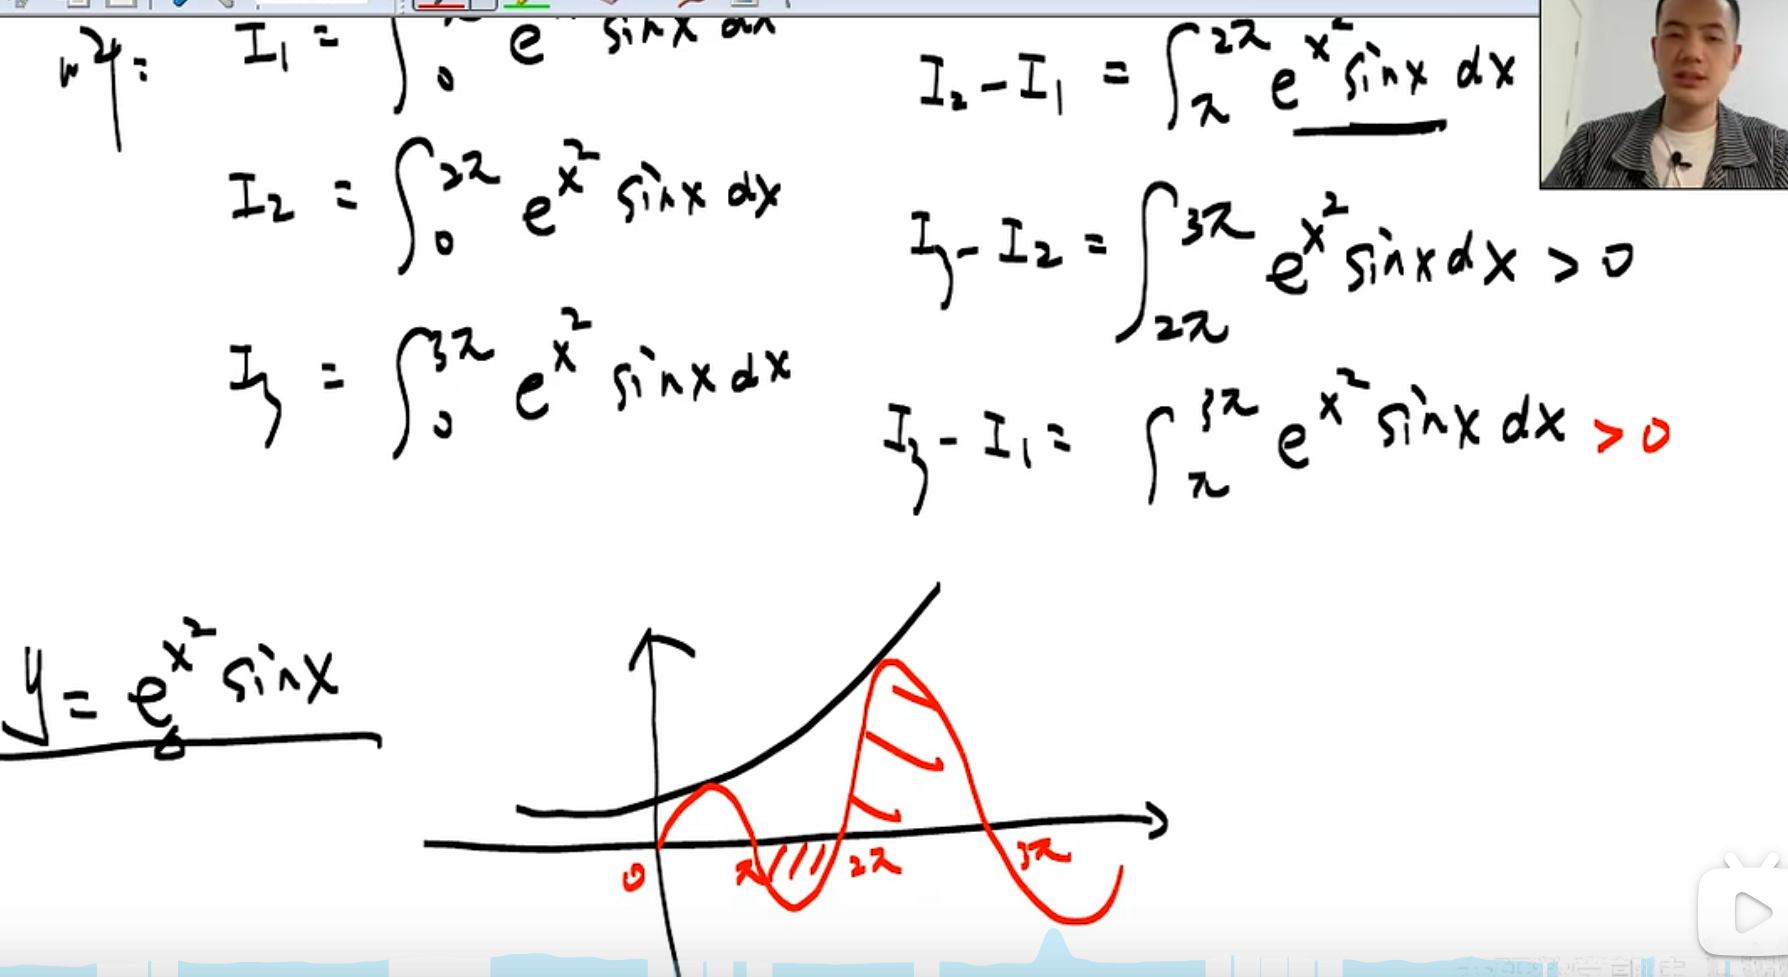 I₁ = ∫₀ e sinx dx
I₂ = ∫₀^{2π} e^{x²} sinx dx
I₃ = ∫₀^{3π} e^{x²} sinx dx
I₂ - I₁ = ∫_π^{2π} e^{x²} sinx dx
I₃ - I₂ = ∫_{2π}^{3π} e^{x²} sinx dx > 0
I₃ - I₁ = ∫_π^{3π} e^{x²} sinx dx > 0
y = e^{x²} sinx
0 π 2π 3π